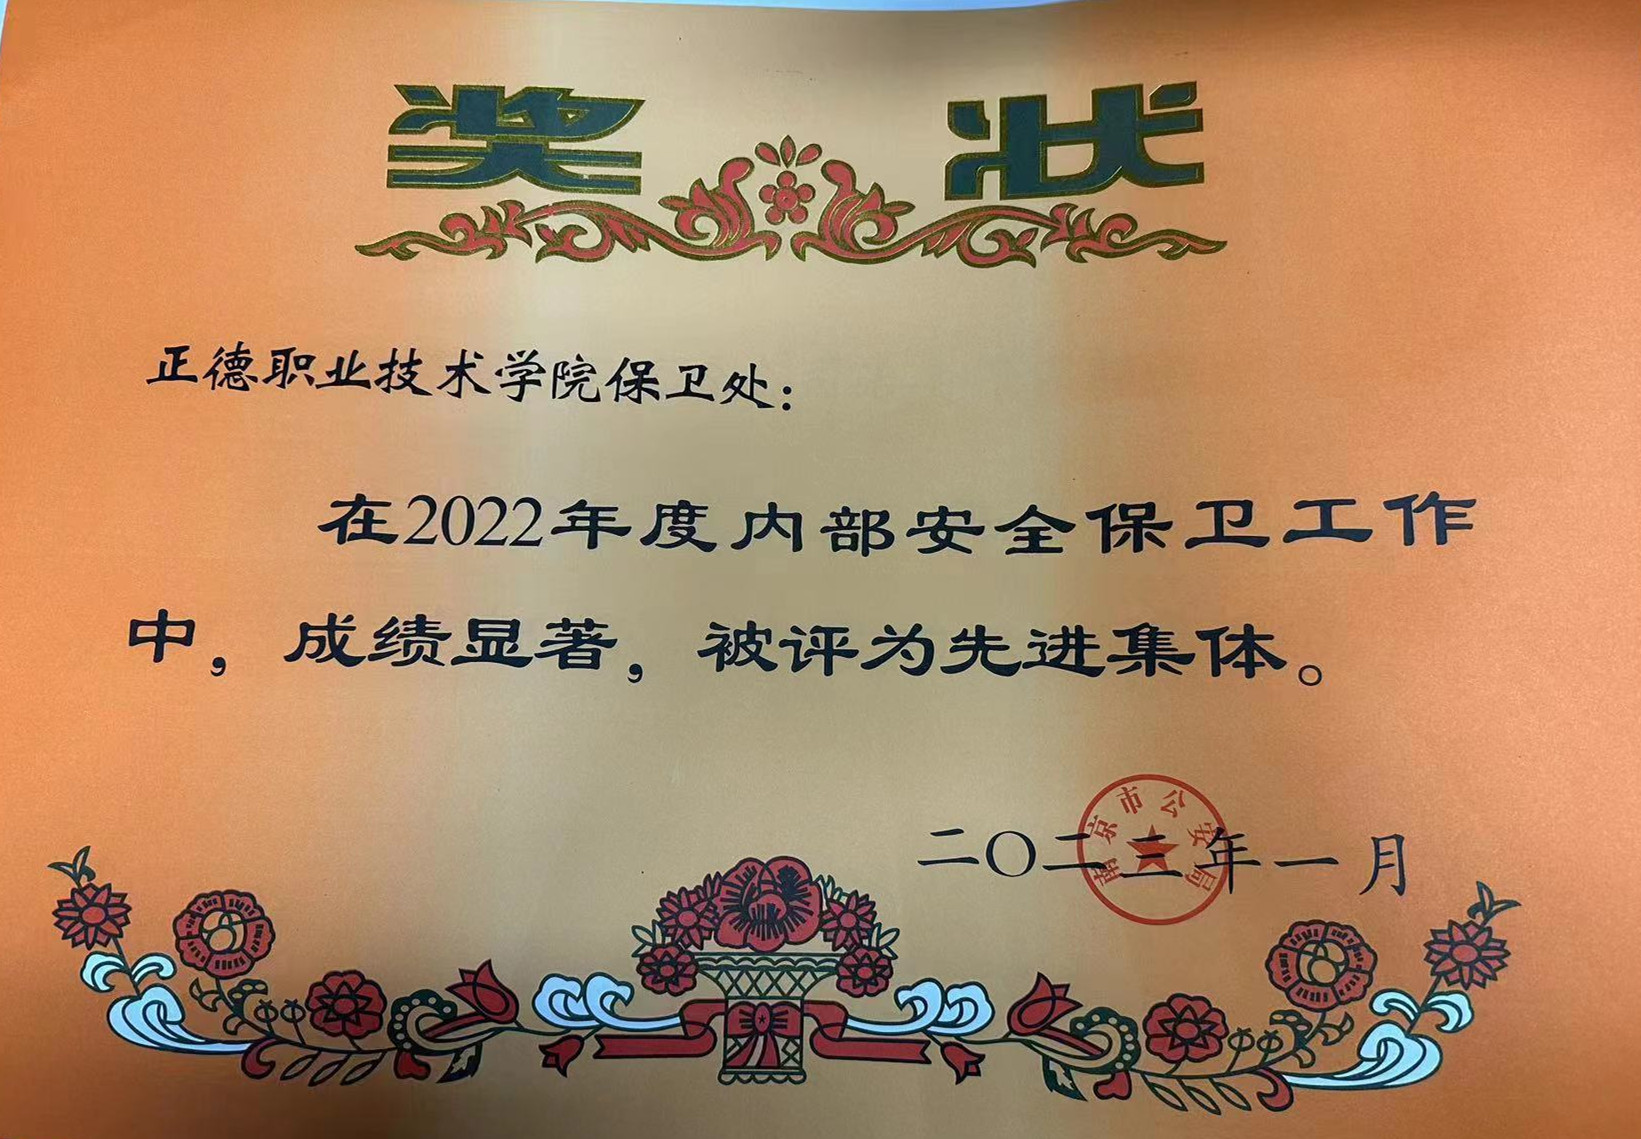 奖状
正德职业技术学院保卫处：
在2022年度内部安全保卫工作
中，成绩显著，被评为先进集体。
二〇二三年一月
南京市公安局